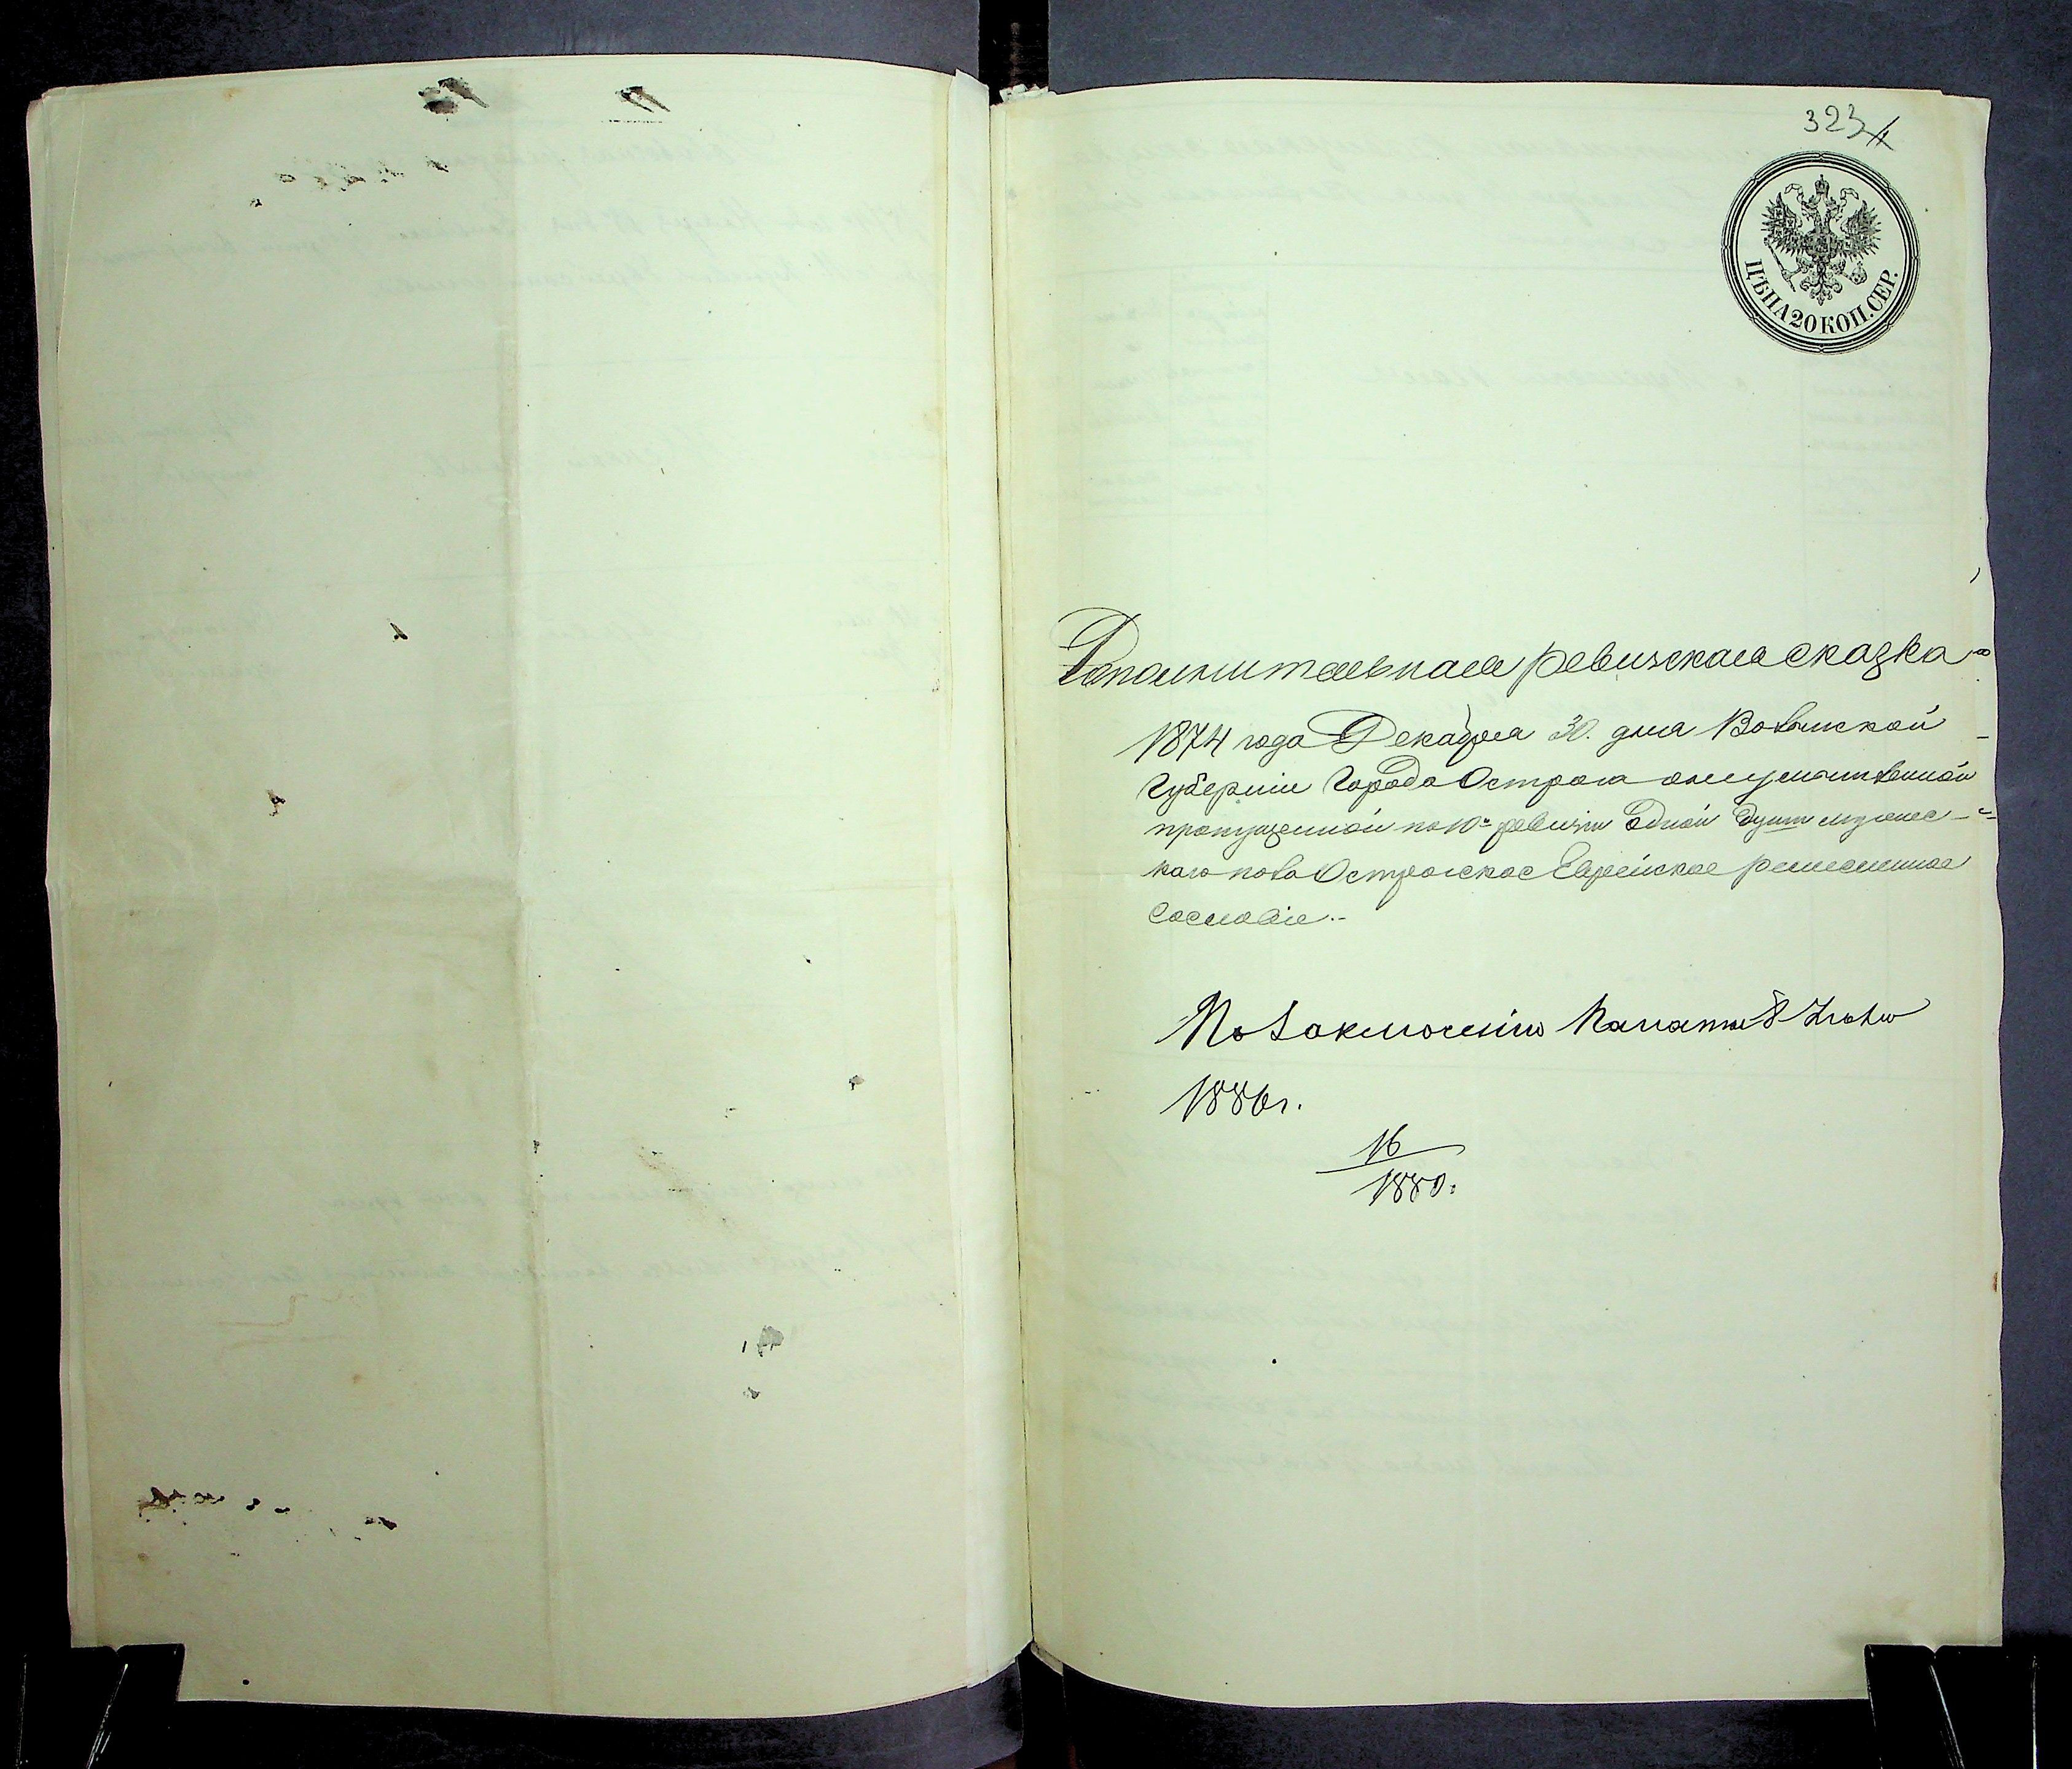 323
ЦѢНА 20 КОП. СЕР.
Дополнительная ревизская сказка
1874 года Декабря 30. дня Волынской
Губернии Города Острога
пропущенной по 10й ревизіи одной души мужес-
каго пола Острожское Еврейское ремесленное
Сословіе.-
По заключенію Палаты 8 Іюля
1886г.
16
1880.